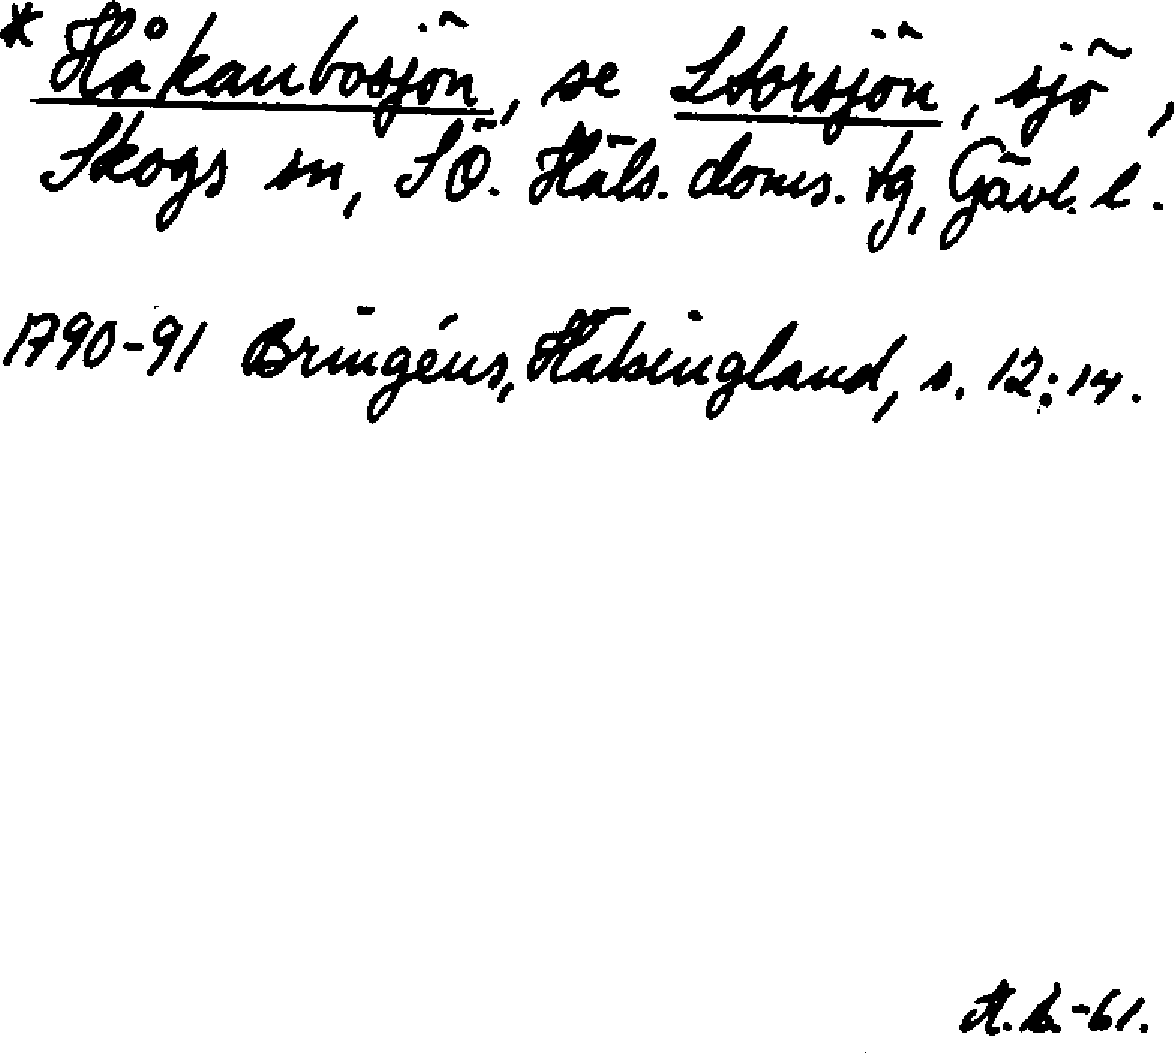 * Håkanbosjön, se Storsjön, sjö,
Skogs sn, SÖ. Häls. doms. tg, Gävl. l.
1790-91 Bringéus, Hälsingland, s. 12; 14.
A.B.-61.